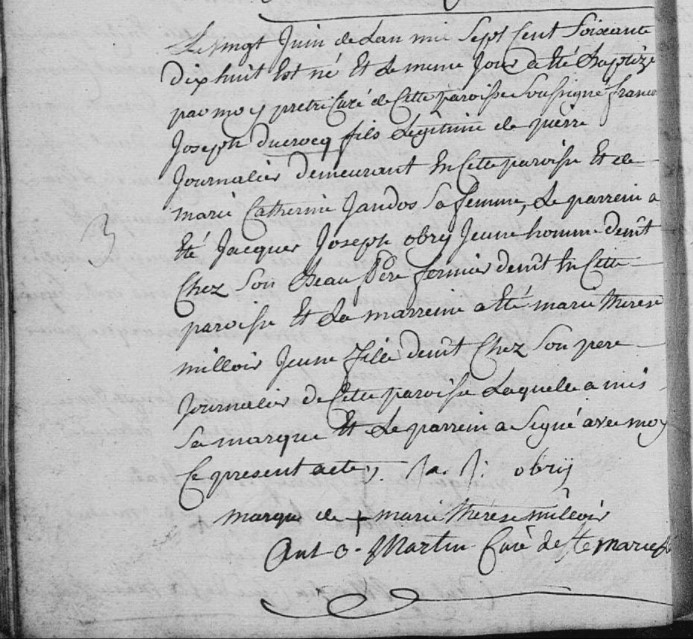 Le vingt Juin de Lan mil Sept Cent Soixante
Dix huit Est né Et Le meme Jour a été Baptizé
par moy pretre Curé de Cette paroisse Soussigné francois
Joseph ducrocq fils Legitime de pierre
Journalier demeurant En Cette paroisse Et de
marie Catherine Jandos Sa femme, Le parrein a
Eté Jacques Joseph obry Jeune homme demt
Chez Son Beau Pere fermier demt En Cette
3
paroisse Et La marreine a été marie therese
milloir Jeune fille demt Chez Son pere
Journalier de Cette paroisse Laquelle a mis
Sa marque Et Le parrein a Signé avec moy
Ce present acte J. obry
marque de + marie therese milloir
Ant Martin Curé de Ste marie